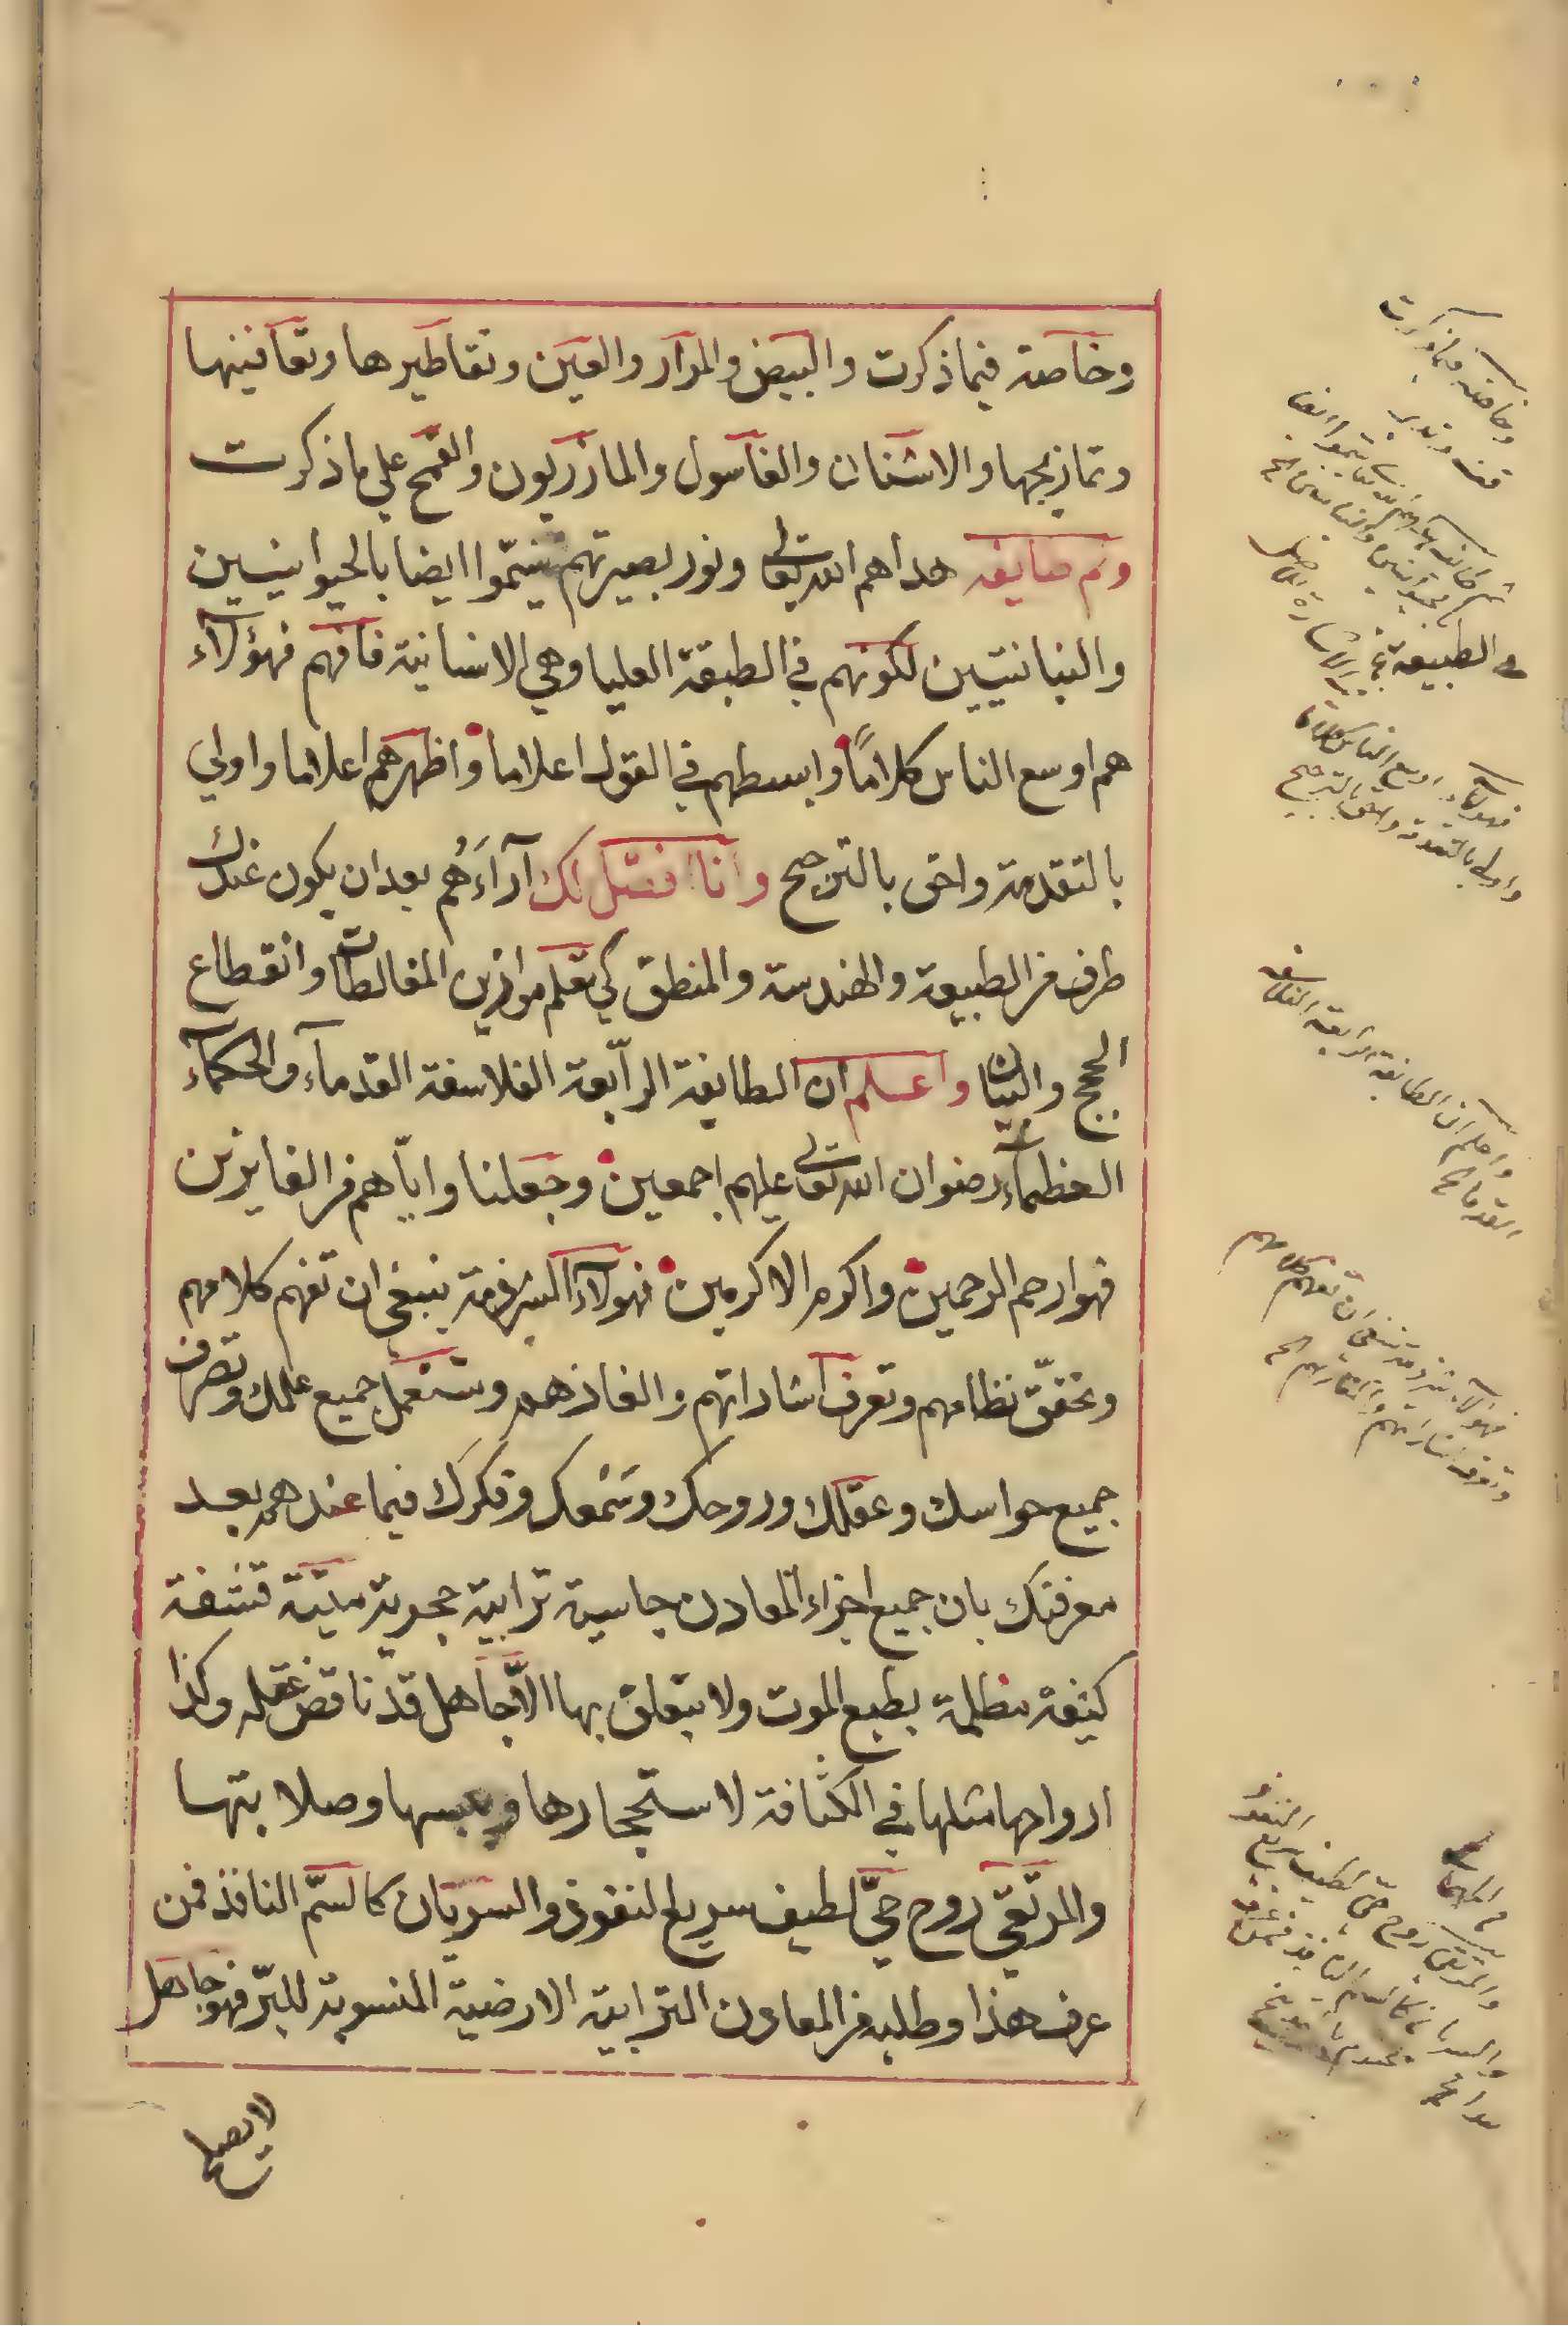 وخاصة فيما ذكرت والبيض والمرار والعين وتقاطيرها وتعافينها
وتمازيجها والاشنان والغاسول والمازريون والقمح علي ماذكرت
وثم طايفة هداهم الله تعالى ونور بصيرتهم تسمّوا ايضا بالحيوانيين
والنباتيين لكونهم في الطبقة العليا وهي الانسانية فافهم فهؤلآء
هم اوسع الناس كلاماً وابسطهم في القول اعلاما واظهرهم اعلاما واولي
بالتقدمة واحق بالترجيح وانا افصّل لك آرآءَهُم بعد ان يكون عندك
طرف من الطبيعة والهندسة والمنطق كي تعلم موازين المغالطات وانقطاع
الحجج والبيان واعلم ان الطايفة الرابعة الفلاسفة القدمآء والحكمآء
العظمآء رضوان الله تعالى عليهم اجمعين وجعلنا وايّاهم من الفايزين
فهو ارحم الرحمين واكرم الاكرمين فهولآء الشرذمة ينبغي ان تفهم كلامهم
وتحقّق نظامهم وتعرف اشاراتهم والغازهم وتستعمل جميع عملك وتصرف
جميع حواسك وعقلك وروحك وسَمْعك وفكرك فيما عندهم بعد
معرفتك بان جميع اجزاء المعادن جاسية ترابية حجرية ميّتة قشفة
كثيفة مظلمة بطبع الموت ولا يتعلق بها الاّ جاهل قد ناقض عقله وكذا
ارواحها مثلها في الكثافة لاستحجارها ويبسها وصلابتها
والمرتقي روح حيّ لطيف سريع النفوذ والسريان كالسّم النافذ فمن
عرف هذا وطلبه من المعادن الترابية الارضية المنسوبة للبرّ فهو جاهل
لا يصلح
وخاصة فيما ذكرت
في الطبيعة
فهولآء اوسع الناس كلاما
واولي بالتقدمة واحق بالترجيح
واعلم ان الطايفة الرابعة الفلاسفة
القدما الخ
فهولآء شرذمة ينبغي ان تفهم كلامهم
وتعرف اشاراتهم والغازهم الخ
والمرتقي روح حي لطيف سريع النفوذ
والسريان كالسم النافذ فمن عرف